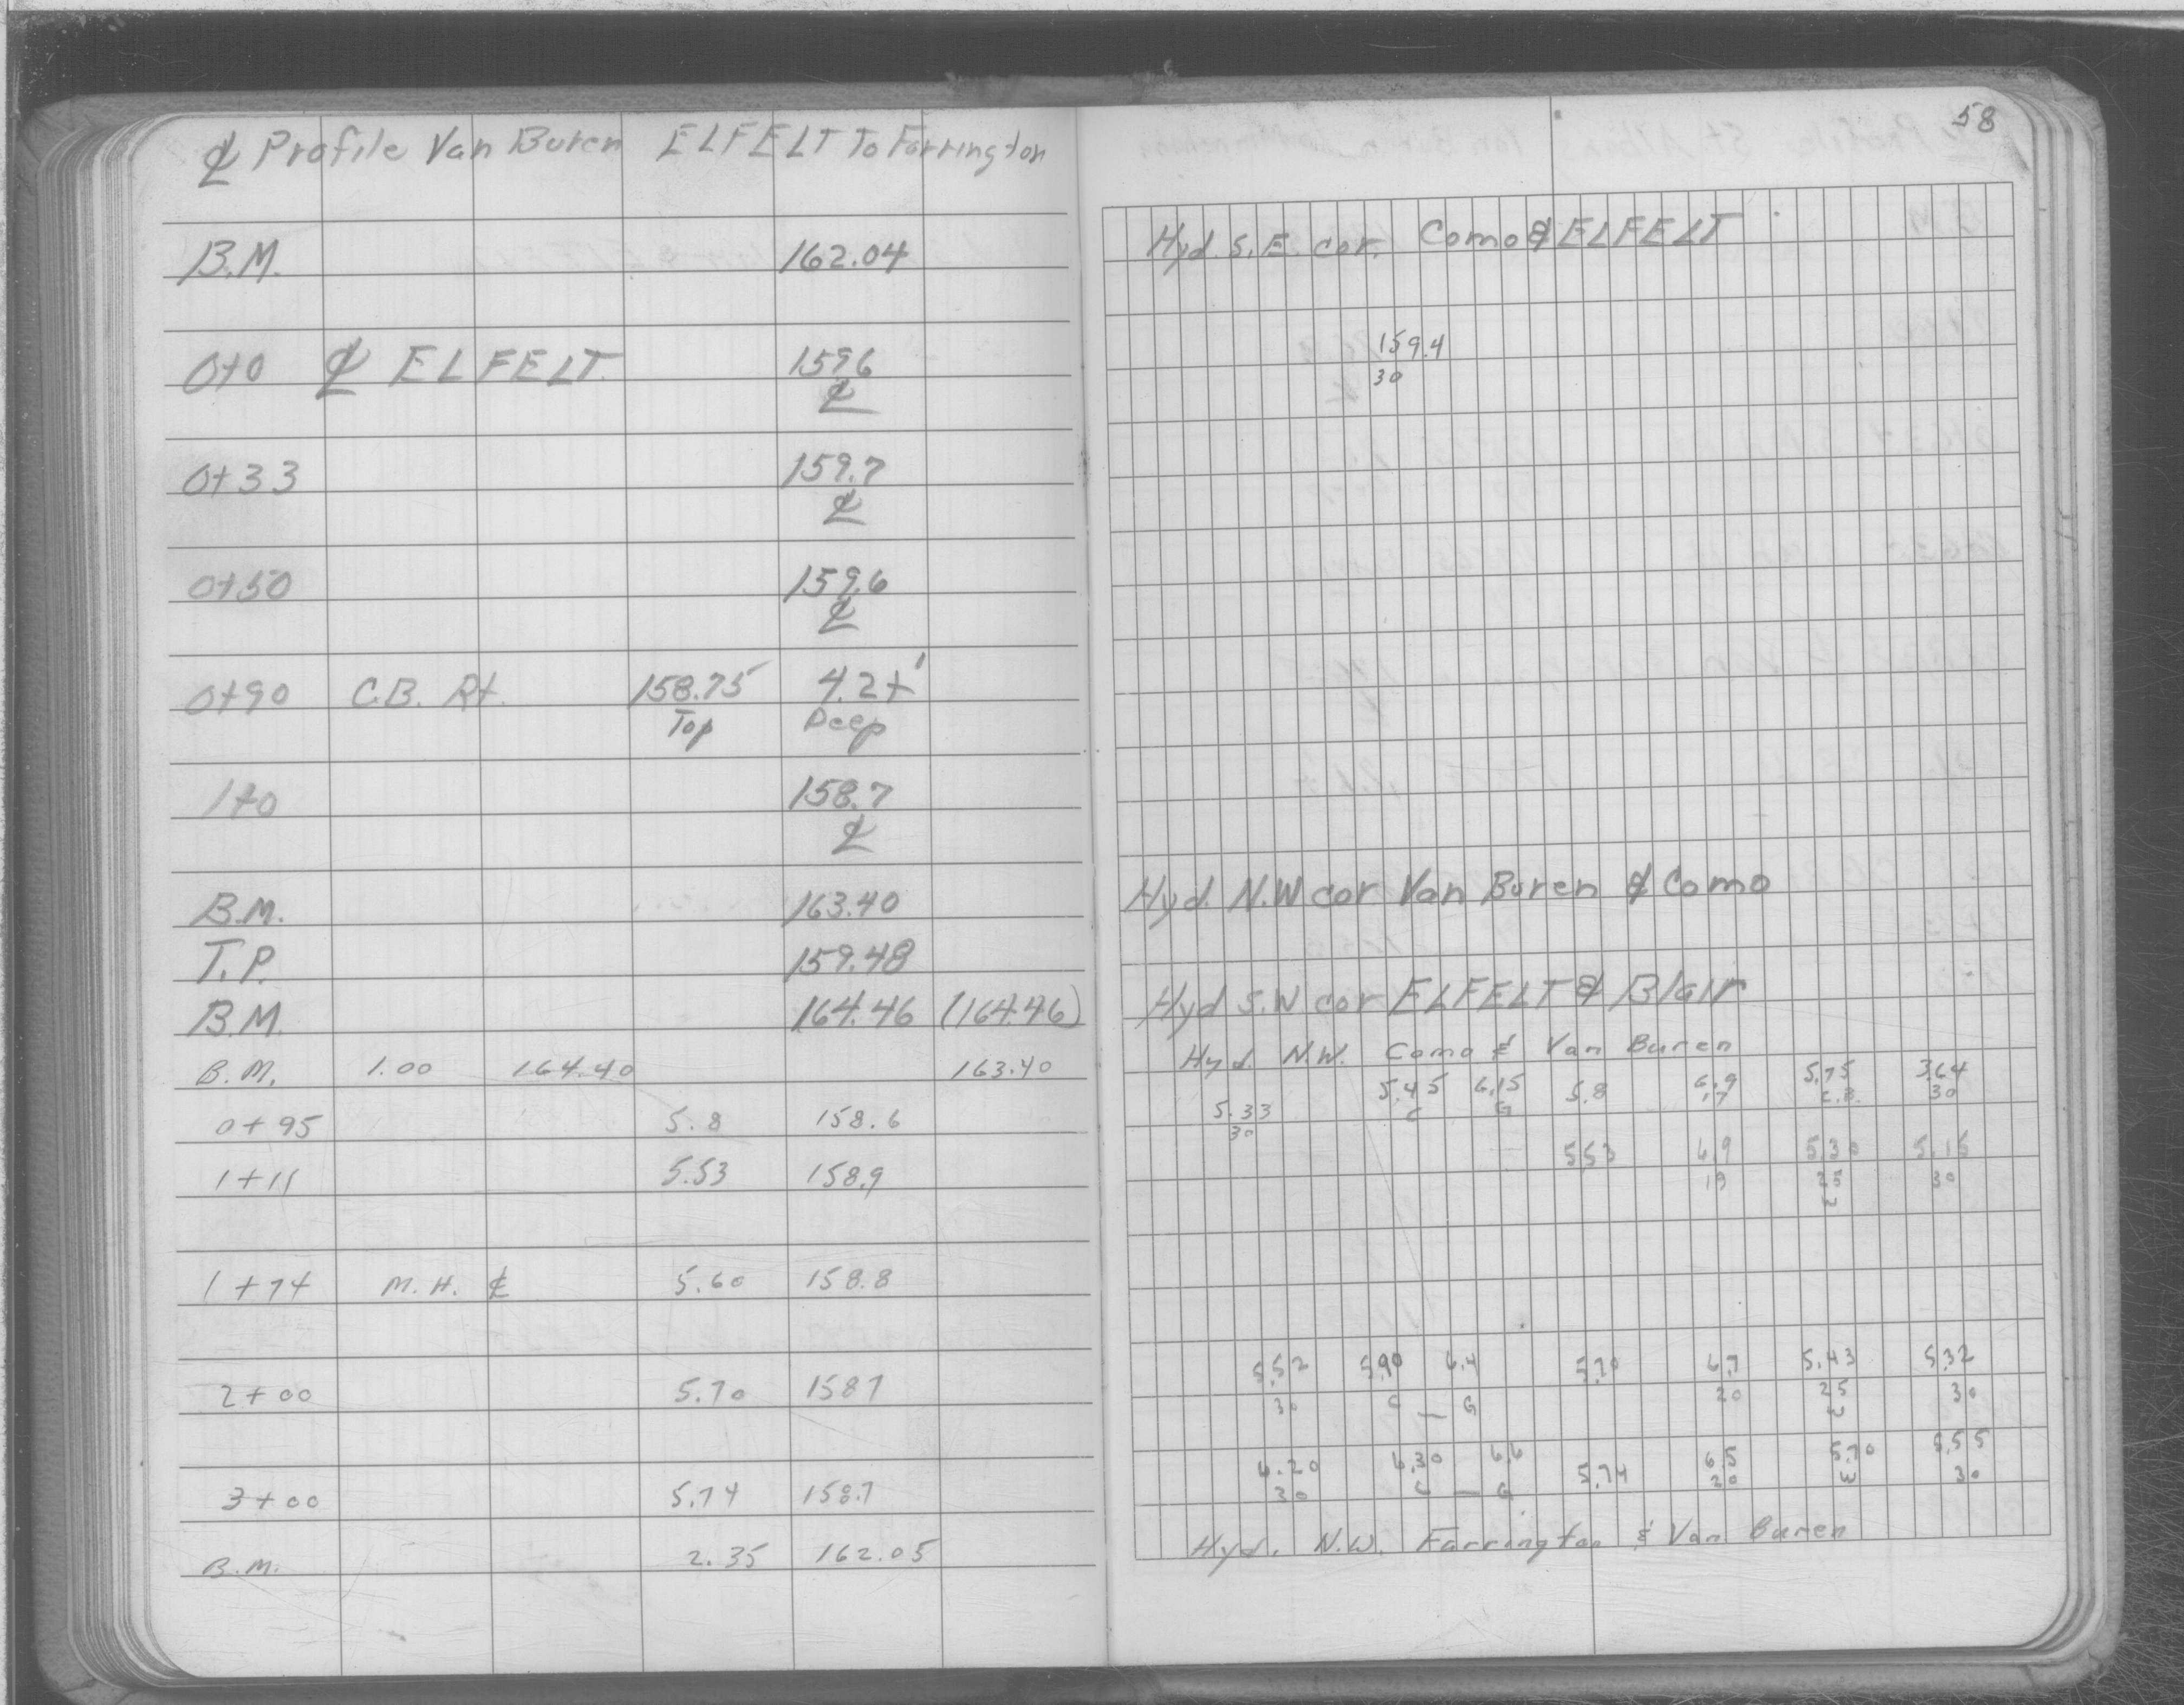 ℄ Profile Van Buren ELFELT To Farrington
B.M. 162.04
0+0 ℄ ELFELT. 159.6
℄
0+33 159.7
℄
0+50 159.6
℄
0+90 C.B. Rt. 158.75 4.2±'
Top Deep
1+0 158.7
℄
B.M. 163.40
T.P. 159.48
B.M. 164.46 (164.46)
B.M. 1.00 164.40 163.40
0+95 5.8 158.6
1+11 5.53 158.9
1+74 M.H. ℄ 5.60 158.8
2+00 5.70 158.7
3+00 5.74 158.7
B.M. 2.35 162.05
58
Hyd. S.E. cor. Como & ELFELT
159.4
30
Hyd. N.W cor Van Buren & Como
Hyd S.W cor ELFELT & Blair
Hyd. N.W. Como & Van Buren
5.33 5.45 6.15 5.8 6.9 5.75 3.64
30 C G 17 C.B. 30
5.53 6.9 5.30 5.15
19 25 30
W
5.52 5.90 6.4 5.70 6.7 5.43 5.32
30 C — G 20 25 30
W
6.20 6.30 6.6 5.74 6.5 5.70 5.55
30 C — G 20 W 30
Hyd. N.W. Farrington & Van Buren